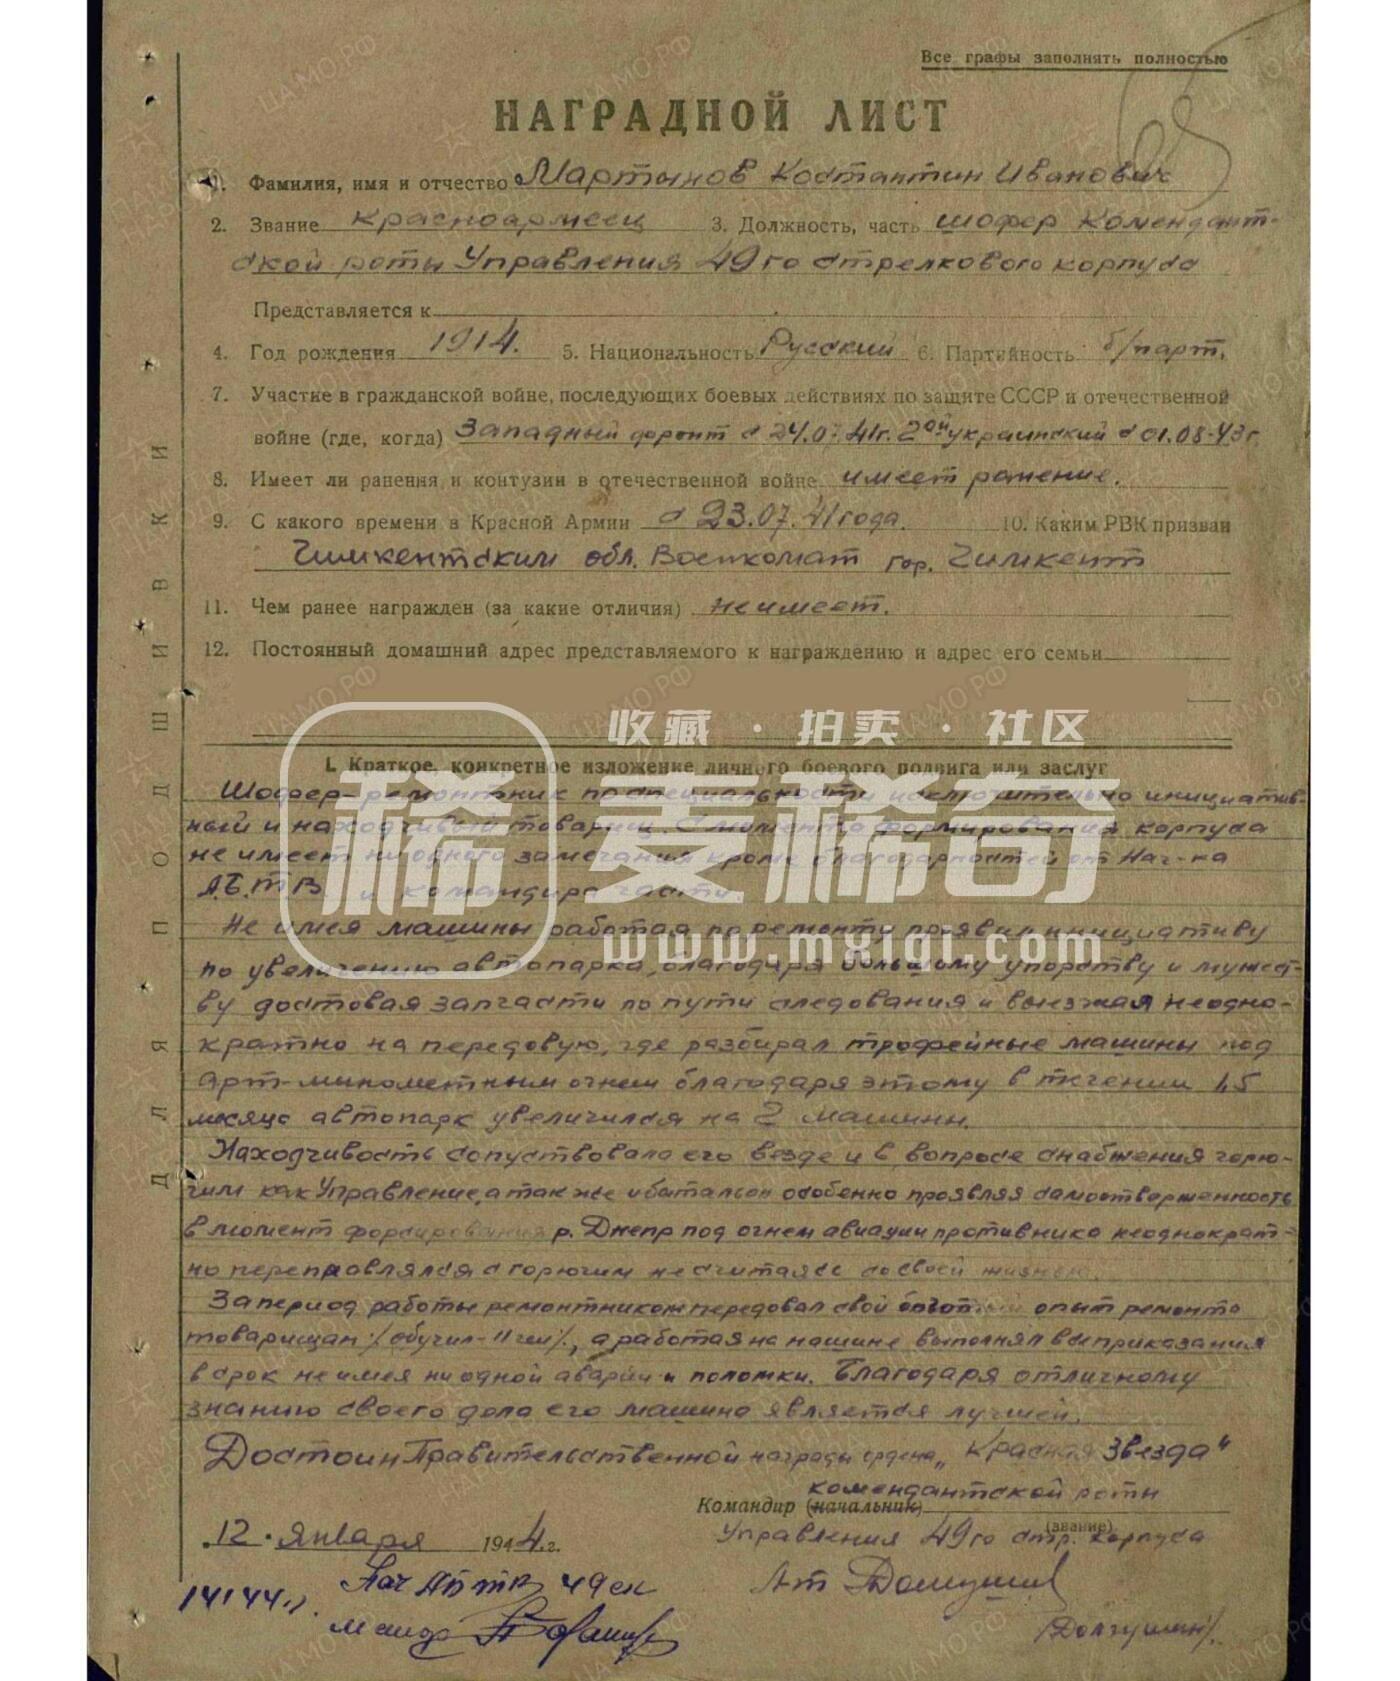 Все графы заполнять полностью
65
НАГРАДНОЙ ЛИСТ
1. Фамилия, имя и отчество Мартынов Костантин Иванович
2. Звание Красноармеец 3. Должность, часть шофер Комендант-
ской роты Управления 49го стрелкового корпуса
Представляется к
4. Год рождения 1914. 5. Национальность Русский 6. Партийность б/парт.
7. Участие в гражданской войне, последующих боевых действиях по защите СССР и отечественной
войне (где, когда) Западный фронт с 24.07.41г. 2ой украинский с 01.08-43г.
8. Имеет ли ранения и контузии в отечественной войне имеет ранение.
9. С какого времени в Красной Армии с 23.07.41 года. 10. Каким РВК призван
Чимкентским обл. Военкомат гор. Чимкент
11. Чем ранее награжден (за какие отличия) не имеет.
12. Постоянный домашний адрес представляемого к награждению и адрес его семьи
收藏 · 拍卖 · 社区
I. Краткое, конкретное изложение личного боевого подвига или заслуг
Шофер-ремонтник по специальности исключительно инициатив-
ный и находчивый товарищ. С момента формирования корпуса
не имеет ни одного замечания кроме благодарностей от Нач-ка
А.Б.Т.В. и командира части.
稀 麦稀奇
Не имея машины работая по ремонту проявил инициативу
www.mxiqi.com
по увеличению автопарка, благодаря большому упорству и мужест-
ву достовая запчасти по пути следования и выезжая неодно-
кратно на передовую, где разбирал трофейные машины под
арт-минометным огнем благодаря этому в течении 1,5
месяца автопарк увеличился на 2 машины.
Находчивость сопуствовала его везде и в вопросе снабжения горю-
чим как Управление, а так же и батальон особенно проявляя самоотверженность
в момент форсирования р. Днепр под огнем авиации противника неоднократ-
но переправлялся с горючим не считаясь со своей жизнью.
За период работы ремонтником передовал свой богатый опыт ремонта
товарищам /обучил-11 чел/, а работая на машине выполнял все приказания
в срок не имея ни одной аварии и поломки. Благодаря отличному
знанию своего дела его машина является лучшей.
Достоин Правительственной награды ордена „Красная Звезда"
комендантской роты
Командир (начальник)
(звание)
Управления 49го стр. корпуса
12. января 1944.г.
14144г. Нач АБТВ 49 ск
майор
Л-т
/Долгушин/.
ДЛЯ ПОДШИВКИ